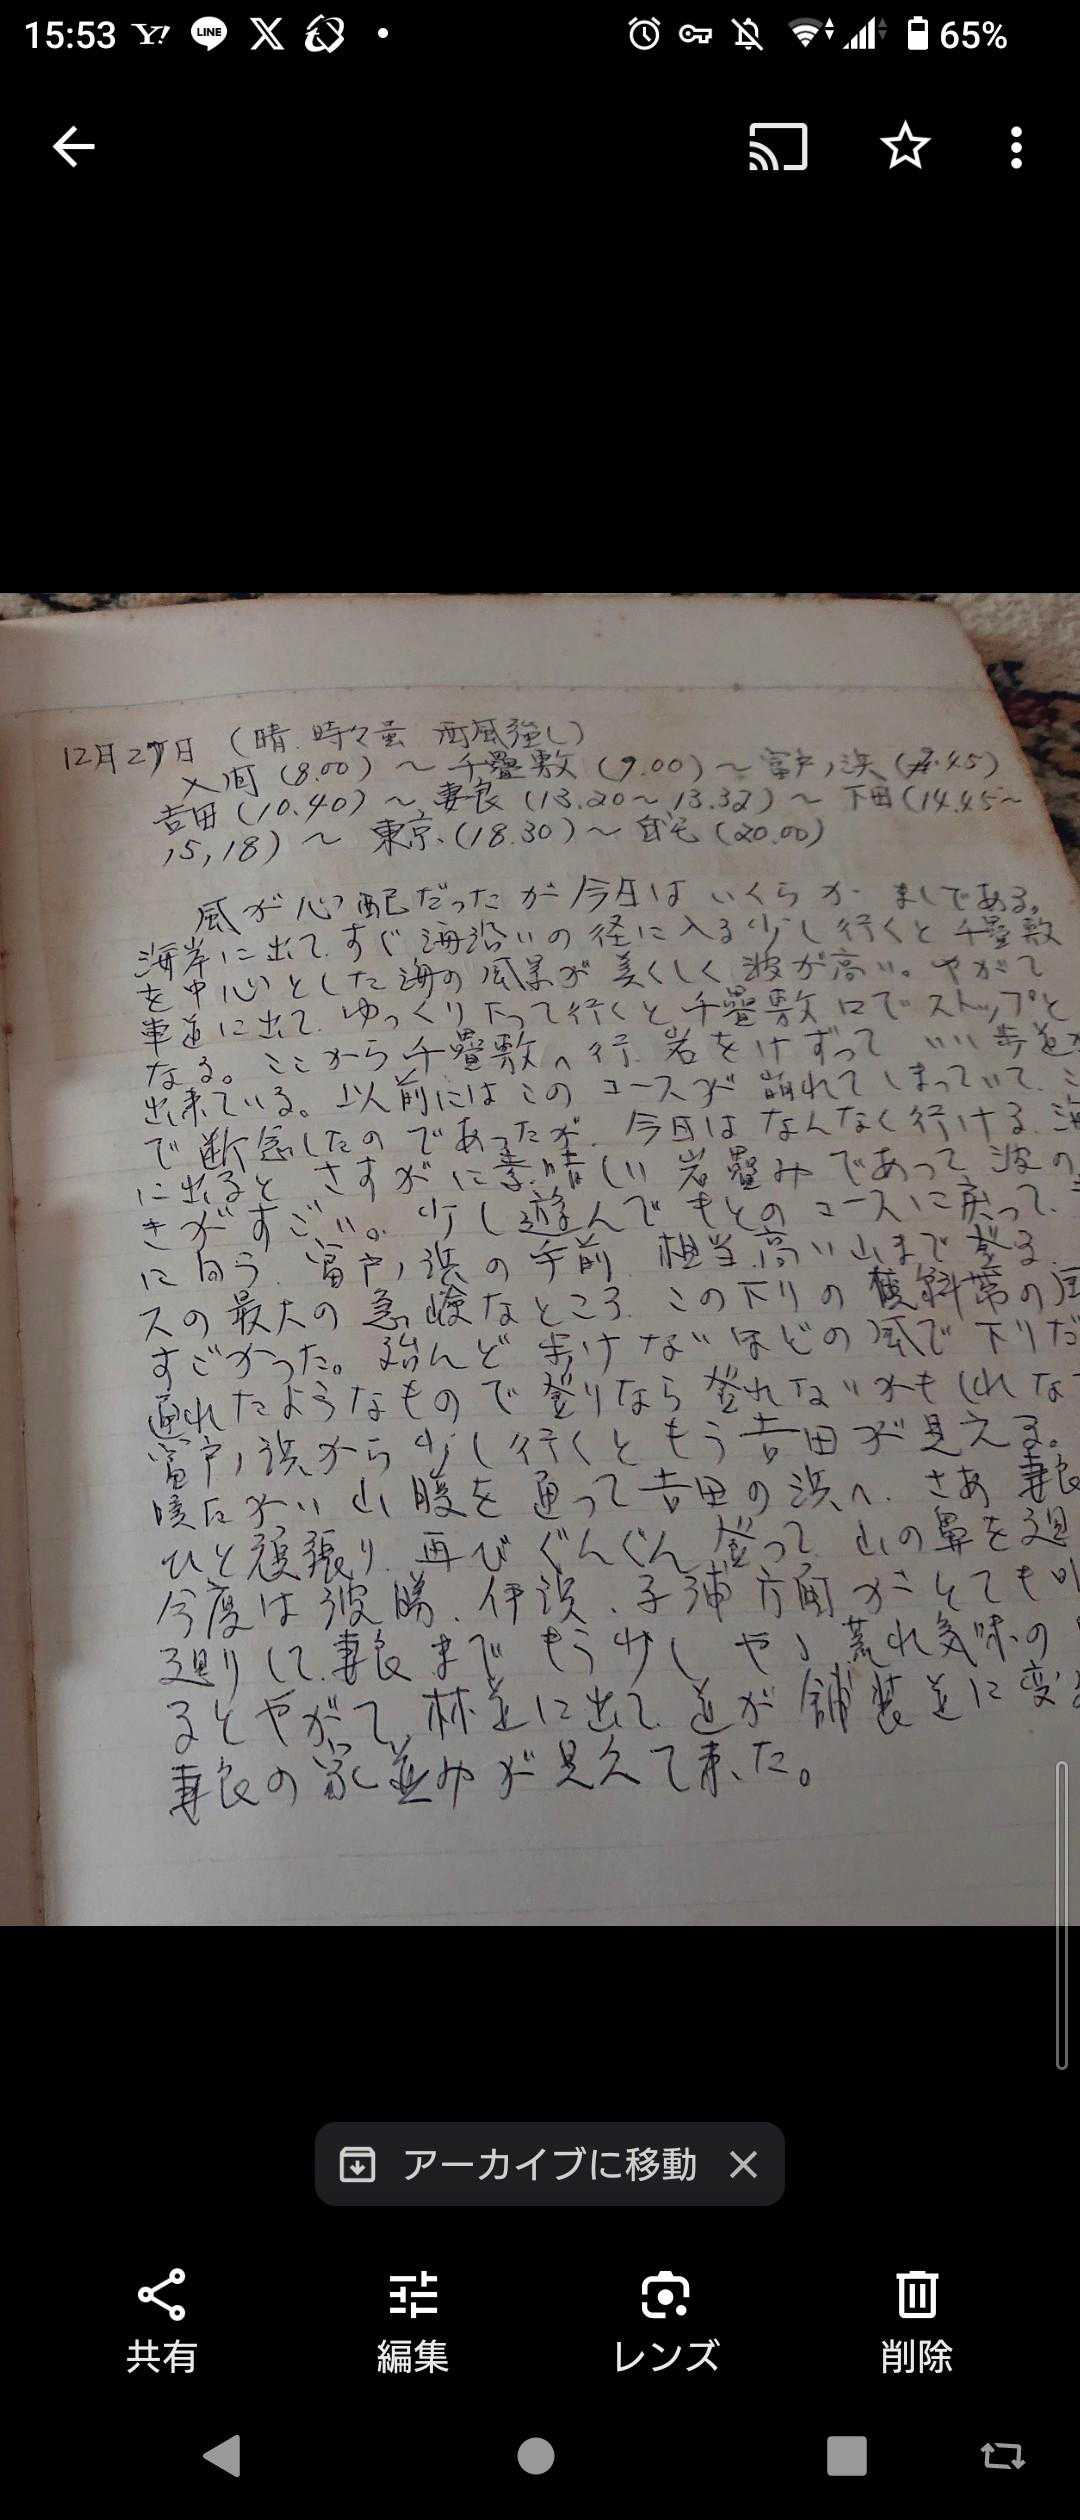 15:53 Y! LINE X 65%
12月27日 (晴.時々曇 西風強し)
入間 (8.00) ～ 千疊敷 (9.00) ～ 富戸ノ浜 (9.45)
吉田 (10.40) ～ 妻良 (13.20～13.32) ～ 下田 (14.45～
15,18) ～ 東京.(18.30) ～ 自宅 (20.00)
風が心配だったが今日はいくらかましである。
海岸に出て.すぐ海沿いの径に入る少し行くと千疊敷
を中心とした海の風景が美しく波が高い。やがて
車道に出て.ゆっくり下って行くと千疊敷口でストップと
なる。ここから千疊敷へ行.岩をけずっていい歩道が
出来ている。以前にはこのコースが崩れてしまっていて.こ
で断念したのであったが.今日はなんなく行ける.海
に出るとさすがに素晴しい岩疊みであって波の
きがすごい。少し遊んでもとのコースに戻って.
に向う.富戸ノ浜の手前.相当高い山まで登る.
スの最大の急険なところ.この下りの傾斜帯の風
すごかった。殆んど歩けないほどの風で下りだ
通れたようなもので登りなら登れないかもしれな
富戸ノ浜から少し行くともう吉田が見える。
暖たかい山腹を通って吉田の浜へ.さあ妻良
ひと頑張り.再びぐんぐん登って.山の鼻を廻
今度は波勝.伊浜.子浦方面がとても
廻りして.妻良までもう少し やゝ荒れ気味の
るとやがて.林道に出て.道が舗装道に変
妻良の家並みが見えて来た。
アーカイブに移動
共有 編集 レンズ 削除